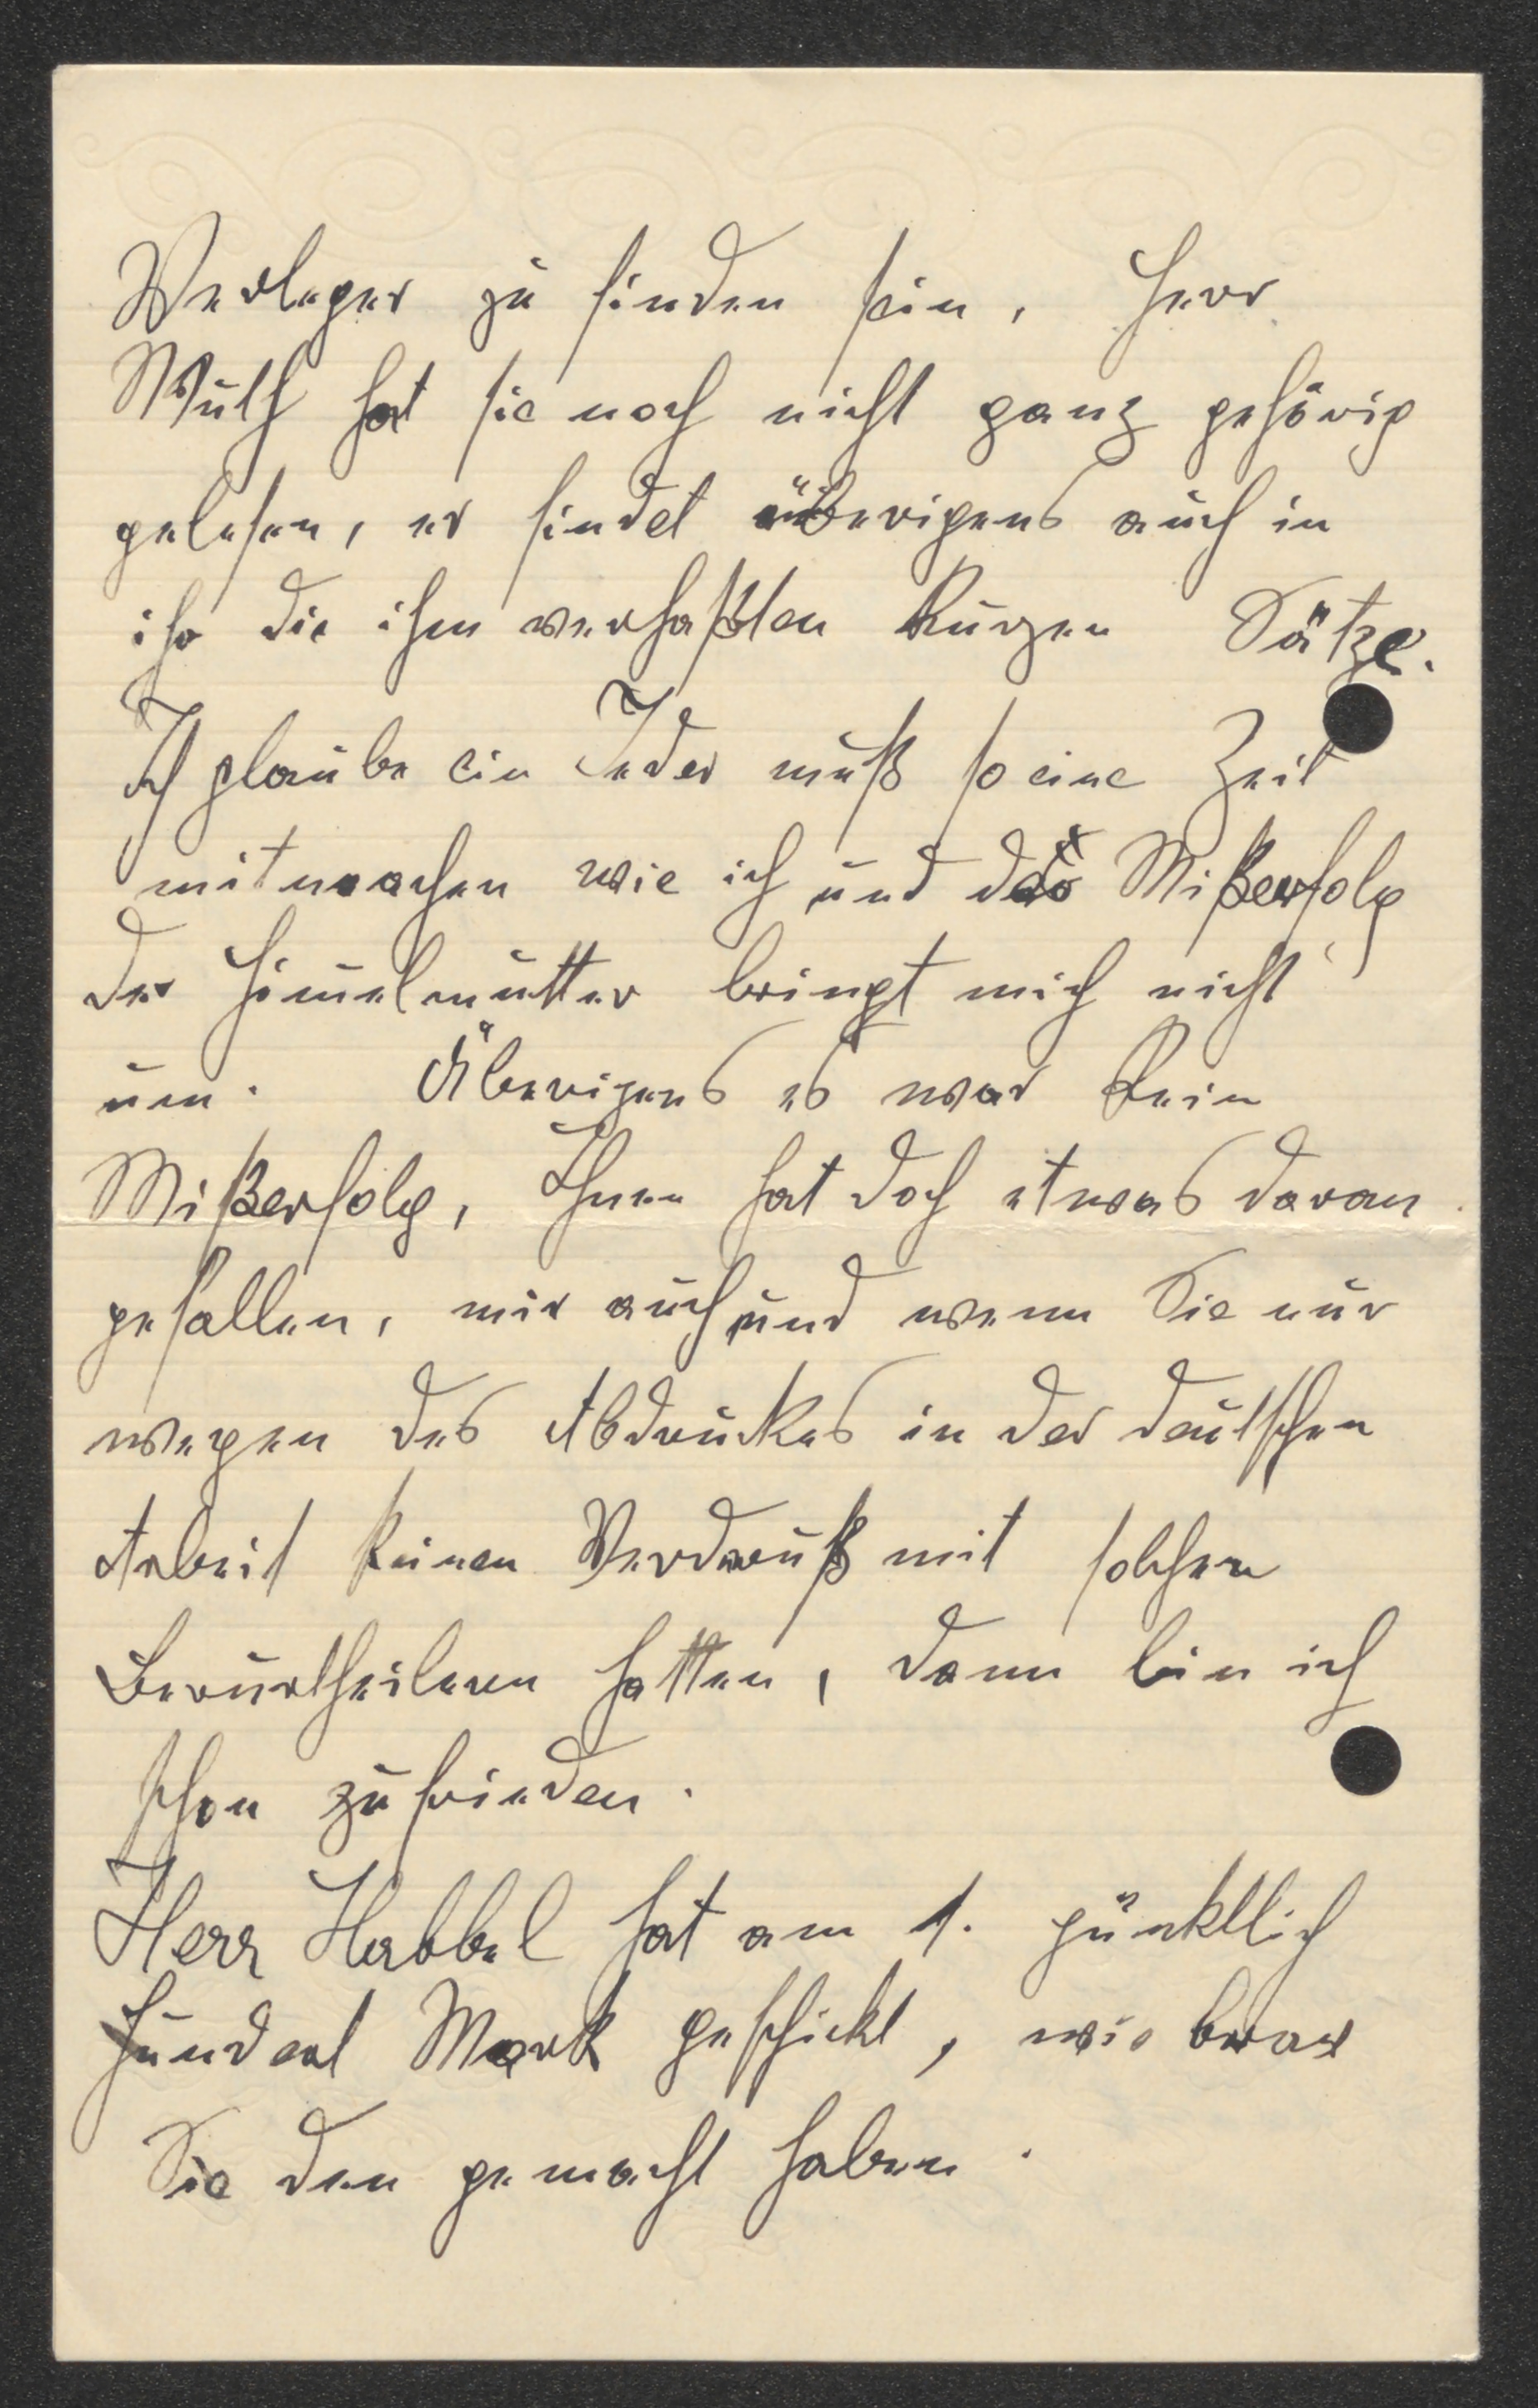 Verleger zu finden sein, Herr
Muth hat sie noch nicht ganz gehörig
gelesen, er findet übrigens auch in
ihr die ihm verhaßten kurzen Sätze.
Ich glaube ein Jeder muß so eine Zeit
mitmachen wie ich und der Mißerfolg
der Himelmutter bringt mich nicht
um. Übrigens es war kein
Mißerfolg, Ihnen hat doch etwas daran
gefallen, mir auch und wenn Sie nur
wegen des Abdruckes in der deutschen
Arbeit keinen Verdruß mit solchen
Beurtheilern hatten, dann bin ich
schon zufrieden.
Herr Habbel hat am 1. pünktlich
hundert Mark geschickt, wie brav
Sie den gemacht haben.